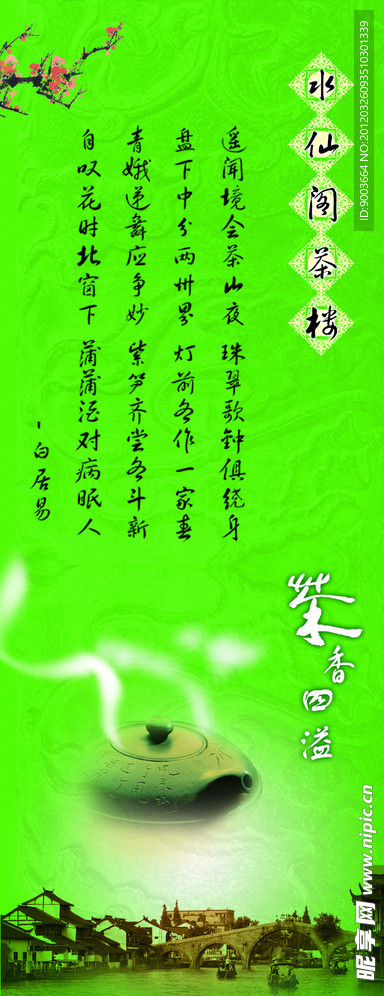 水仙阁茶楼
遥闻境会茶山夜 珠翠歌钟俱绕身
盘下中分两州界 灯前各作一家春
青娥递舞应争妙 紫笋齐尝各斗新
自叹花时北窗下 蒲蒲酒对病眠人
-白居易
茶香四溢
昵享网 www.nipic.cn
ID:9003664 NO:20120326093510301339